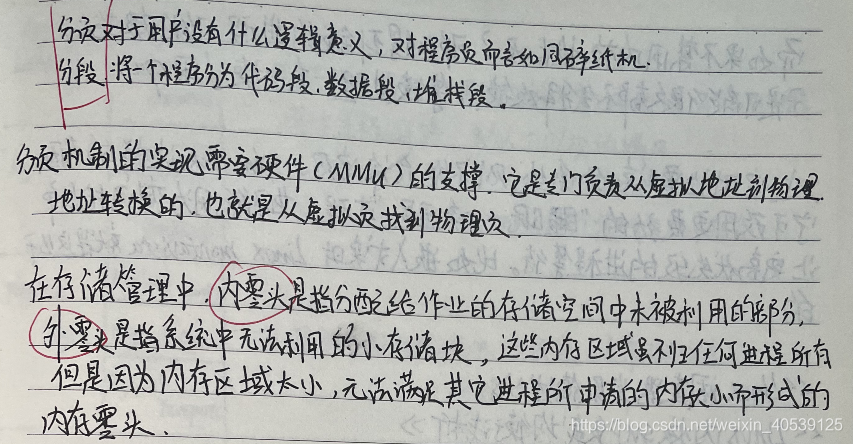 分页对于用户没有什么逻辑意义，对程序员而言如同碎纸机.
分段 将一个程序分为代码段.数据段，堆栈段。
分页机制的实现需要硬件(MMU)的支撑.它是专门负责从虚拟地址到物理
地址转换的.也就是从虚拟页找到物理页.
在存储管理中.内零头是指分配给作业的存储空间中未被利用的部分,
外零头是指系统中无法利用的小存储块，这些内存区域虽不归任何进程所有
但是因为内存区域太小,无法满足其它进程所申请的内存大小而形成的
内存零头.
https://blog.csdn.net/weixin_40539125